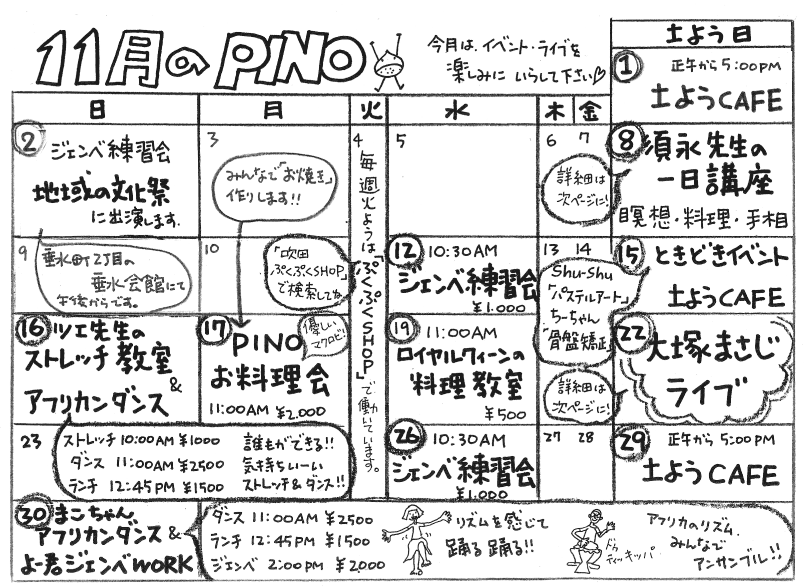 11月のPINO
今月は、イベント・ライブを
楽しみに いらして下さい♡
土よう日
1 正午から5:00PM
土ようCAFE
日 月 火 水 木 金
2 ジェンベ練習会
地域の文化祭
に出演します.
3
みんなで「お焼き」
作りします!!
4 毎週火ようは「ぷくぷくSHOP」で働いています。
5
6 7
詳細は
次ページに!
8 須永先生の
一日講座
瞑想・料理・手相
9
垂水町2丁目の
垂水会館にて
午後からです。
10
「吹田
ぷくぷくSHOP」
で検索してね
12 10:30AM
ジェンベ練習会
¥1.000
13 14
Shu-Shu
「パステルアート」
ちーちゃん
「骨盤矯正」
15 ときどきイベント
土ようCAFE
16 ツエ先生の
ストレッチ教室
&
アフリカンダンス
17 PINO
お料理会
11:00AM ¥2.000
優しい
マクロビ
19 11:00AM
ロイヤルクィーンの
料理教室
¥500
詳細は
次ページに!
22 大塚まさじ
ライブ
23
ストレッチ 10:00AM ¥1000
ダンス 11:00AM ¥2500
ランチ 12:45PM ¥1500
誰もができる!!
気持ちいーい
ストレッチ&ダンス!!
26 10:30AM
ジェンベ練習会
¥1.000
27 28
29 正午から5:00PM
土ようCAFE
30 まこちゃん
アフリカンダンス &
よー君ジェンベWORK
ダンス 11:00AM ¥2500
ランチ 12:45PM ¥1500
ジェンベ 2:00PM ¥2000
リズムを感じて
踊る踊る!!
ドゥ
ティッキッパ
アフリカのリズム.
みんなで
アンサンブル!!